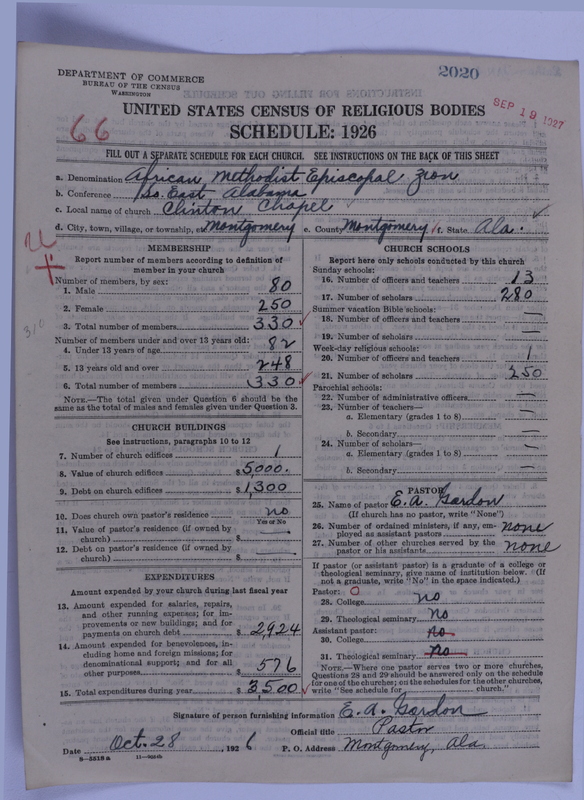 2020
DEPARTMENT OF COMMERCE
BUREAU OF THE CENSUS
WASHINGTON
SEP 19 1927
UNITED STATES CENSUS OF RELIGIOUS BODIES
66
SCHEDULE: 1926
FILL OUT A SEPARATE SCHEDULE FOR EACH CHURCH. SEE INSTRUCTIONS ON THE BACK OF THIS SHEET
a. Denomination African Methodist Episcopal Zion
b. Conference So. East Alabama
c. Local name of church Clinton Chapel
d. City, town, village, or township, etc. Montgomery e. County Montgomery f. State Ala.
MEMBERSHIP
Report number of members according to definition of
member in your church
Number of members, by sex:
1. Male 80
2. Female 250
3. Total number of members 330
310
Number of members under and over 13 years old:
4. Under 13 years of age 82
5. 13 years old and over 248
6. Total number of members 330
NOTE.—The total given under Question 6 should be
same as the total of males and females given under Question 3.
CHURCH BUILDINGS
See instructions, paragraphs 10 to 12
7. Number of church edifices 1
8. Value of church edifices $ 5000.
9. Debt on church edifices $ 1,300
10. Does church own pastor's residence no
Yes or No
11. Value of pastor's residence (if owned by
church) $ —
12. Debt on pastor's residence (if owned by
church) $ —
EXPENDITURES
Amount expended by your church during last fiscal year
13. Amount expended for salaries, repairs,
and other running expenses; for im-
provements or new buildings; and for
payments on church debt $ 2924
14. Amount expended for benevolences, in-
cluding home and foreign missions; for
denominational support; and for all
other purposes $ 576
15. Total expenditures during year $ 3,500
CHURCH SCHOOLS
Report here only schools conducted by this church
Sunday schools:
16. Number of officers and teachers 13
17. Number of scholars 280
Summer vacation Bible schools:
18. Number of officers and teachers —
19. Number of scholars —
Week-day religious schools:
20. Number of officers and teachers 1
21. Number of scholars 250
Parochial schools:
22. Number of administrative officers —
23. Number of teachers—
a. Elementary (grades 1 to 8) —
b. Secondary —
24. Number of scholars—
a. Elementary (grades 1 to 8) —
b. Secondary —
PASTOR
25. Name of pastor E. A. Gordon
(If church has no pastor, write "None")
26. Number of ordained ministers, if any, em-
ployed as assistant pastors none
27. Number of other churches served by the
pastor or his assistants none
If pastor (or assistant pastor) is a graduate of a college or
theological seminary, give name of institution below. (If
not a graduate, write "No" in the space indicated.)
Pastor: O
28. College no
29. Theological seminary no
Assistant pastor:
30. College no
31. Theological seminary no
NOTE.—Where one pastor serves two or more churches,
Questions 28 and 29 should be answered only on the schedule
for one of the churches; on the schedules for the other churches,
write "See schedule for church."
Signature of person furnishing information E. A. Gordon
Official title Pastor
Date Oct. 28, 1926 P. O. Address Montgomery, Ala
8-5518a